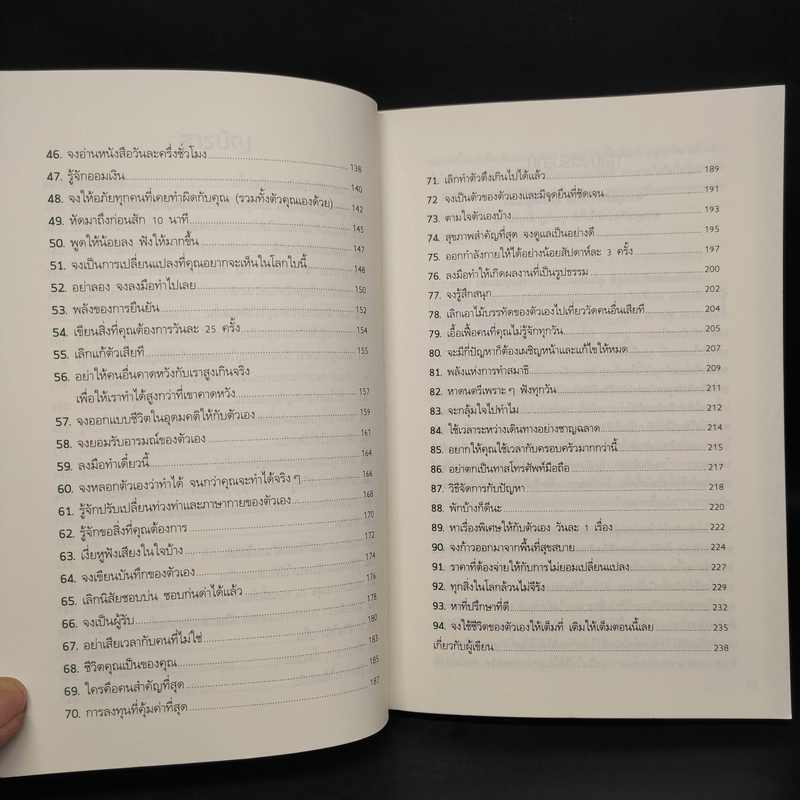 46. จงอ่านหนังสือวันละครึ่งชั่วโมง 138
47. รู้จักออมเงิน 140
48. จงให้อภัยทุกคนที่เคยทำผิดกับคุณ (รวมทั้งตัวคุณเองด้วย) 142
49. หัดมาถึงก่อนสัก 10 นาที 145
50. พูดให้น้อยลง ฟังให้มากขึ้น 147
51. จงเป็นการเปลี่ยนแปลงที่คุณอยากจะเห็นในโลกใบนี้ 148
52. อย่าลอง จงลงมือทำไปเลย 150
53. พลังของการยืนยัน 152
54. เขียนสิ่งที่คุณต้องการวันละ 25 ครั้ง 154
55. เลิกแก้ตัวเสียที 155
56. อย่าให้คนอื่นคาดหวังกับเราสูงเกินจริง
เพื่อให้เราทำได้สูงกว่าที่เขาคาดหวัง 157
57. จงออกแบบชีวิตในอุดมคติให้กับตัวเอง 159
58. จงยอมรับอารมณ์ของตัวเอง 161
59. ลงมือทำเดี๋ยวนี้ 164
60. จงหลอกตัวเองว่าทำได้ จนกว่าคุณจะทำได้จริงๆ 166
61. รู้จักปรับเปลี่ยนท่วงท่าและภาษากายของตัวเอง 168
62. รู้จักขอสิ่งที่คุณต้องการ 170
63. เงี่ยหูฟังเสียงในใจบ้าง 172
64. จงเขียนบันทึกของตัวเอง 174
65. เลิกนิสัยชอบบ่น ชอบก่นด่าได้แล้ว 176
66. จงเป็นผู้รับ 178
67. อย่าเสียเวลากับคนที่ไม่ใช่ 180
68. ชีวิตคุณเป็นของคุณ 183
69. ใครคือคนสำคัญที่สุด 185
70. การลงทุนที่คุ้มค่าที่สุด 187
71. เลิกทำตัวตึงเกินไปได้แล้ว 189
72 จงเป็นตัวของตัวเองและมีจุดยืนที่ชัดเจน 191
73. ตามใจตัวเองบ้าง 193
74. สุขภาพสำคัญที่สุด จงดูแลเป็นอย่างดี 195
75. ออกกำลังกายให้ได้อย่างน้อยสัปดาห์ละ 3 ครั้ง 197
76. ลงมือทำให้เกิดผลงานที่เป็นรูปธรรม 200
77. จงรู้สึกสนุก 202
78. เลิกเอาไม้บรรทัดของตัวเองไปเที่ยววัดคนอื่นเสียที 204
79. เอื้อเฟื้อคนที่คุณไม่รู้จักทุกวัน 205
80. จะมีกี่ปัญหาก็ต้องเผชิญหน้าและแก้ไขให้หมด 207
81. พลังแห่งการทำสมาธิ 209
82. หาดนตรีเพราะๆ ฟังทุกวัน 211
83. จะกลุ้มใจไปทำไม 212
84. ใช้เวลาระหว่างเดินทางอย่างชาญฉลาด 214
85. อยากให้คุณใช้เวลากับครอบครัวมากกว่านี้ 215
86. อย่าตกเป็นทาสโทรศัพท์มือถือ 217
87. วิธีจัดการกับปัญหา 218
88. พักบ้างก็ดีนะ 220
89. หาเรื่องพิเศษให้กับตัวเอง วันละ 1 เรื่อง 222
90. จงก้าวออกมาจากพื้นที่สุขสบาย 224
91. ราคาที่ต้องจ่ายให้กับการไม่ยอมเปลี่ยนแปลง 227
92. ทุกสิ่งในโลกล้วนไม่จีรัง 229
93. หาที่ปรึกษาที่ดี 232
94. จงใช้ชีวิตของตัวเองให้เต็มที่ เติมให้เต็มตอนนี้เลย 235
เกี่ยวกับผู้เขียน 238